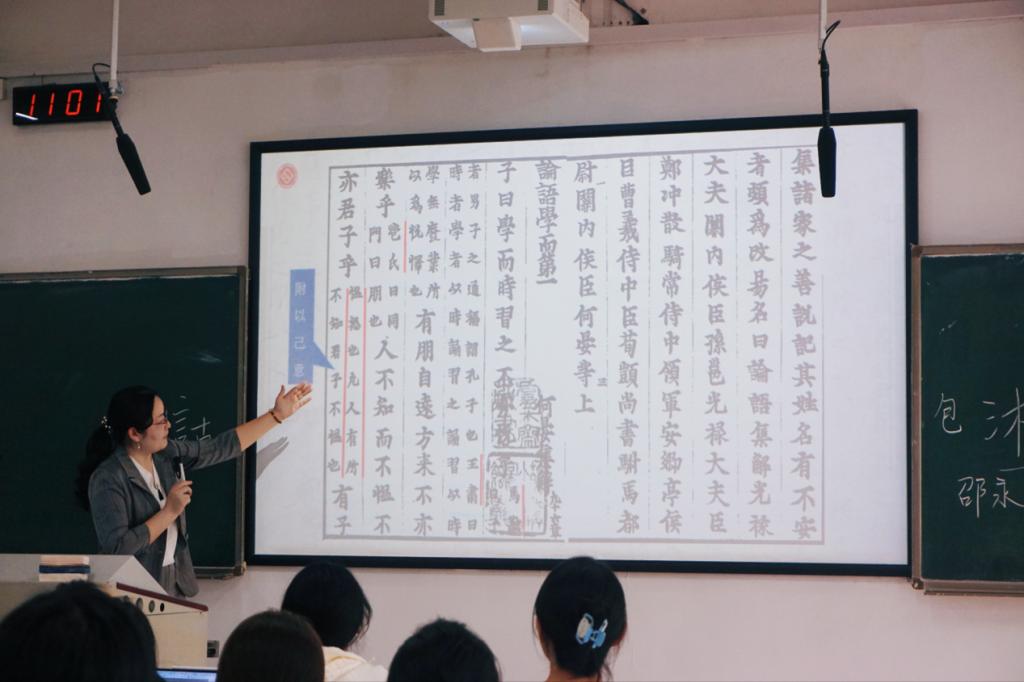 1101
集諸家之善說記其姓名有不安
者頗爲改易名曰論語集解光祿
大夫關內侯臣孫邕光祿大夫臣
鄭沖散騎常侍中領軍安鄉亭侯
臣曹羲侍中臣荀顗尚書駙馬都
尉關內侯臣何晏等上
論語學而第一
子曰學而時習之不
者男子之通稱謂孔子也王肅曰
時者學者以時誦習之誦習以時
學無廢業所
以爲悅懌也
有朋自遠方来不亦
樂乎
苞氏曰同
門曰朋也
人不知而不慍不
亦君子乎
慍怒也凡人有所
不知君子不慍也
有子
附以己意
包
邵永